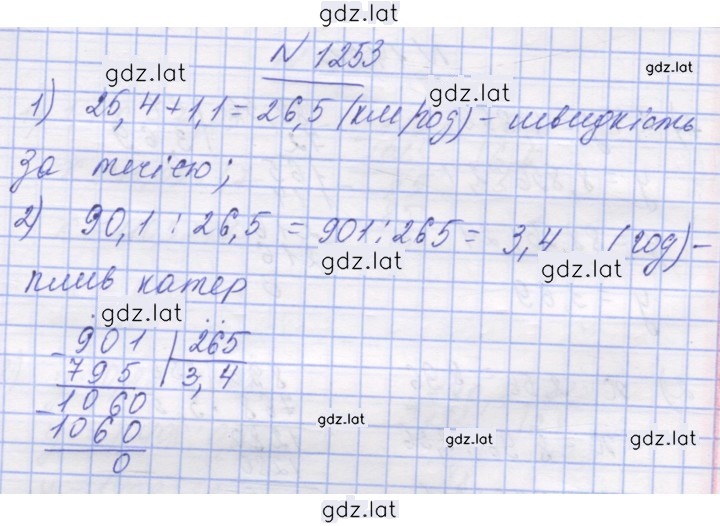 gdz.lat
N 1253
gdz.lat
gdz.lat
gdz.lat
1) 25,4+1,1=26,5 (км/год) - швидкість
за течією;
2) 90,1 : 26,5 = 901:265 = 3,4 (год) -
gdz.lat
gdz.lat
плив катер
gdz.lat
901 | 265
795 | 3,4
1060
1060
0
gdz.lat
gdz.lat
gdz.lat
gdz.lat